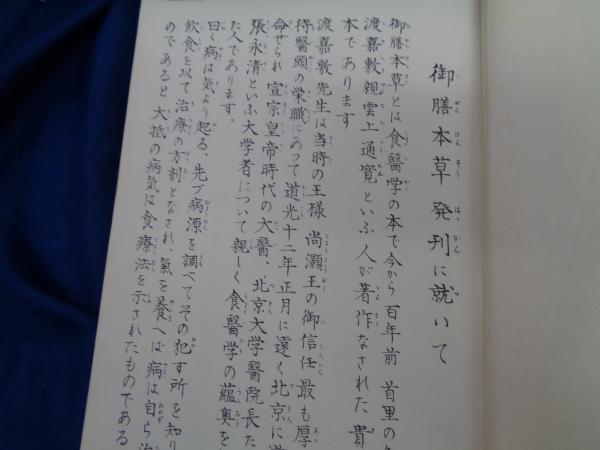 御膳本草発刊に就いて
御膳本草とは食醫学の本で今から百年前 首里の
渡嘉敷親雲上通寛といふ人が著作なされた貴
本であります
渡嘉敷先生は当時の王様 尚灝王の御信任最も厚
侍醫頭の栄職にあって道光十二年正月に遠く北京に
命せられ 宣宗皇帝時代の大醫、北京大学醫院長た
張永清といふ大学者について親しく食醫学の蘊奥を
た人であります。
曰く病は気より起る、先づ病源を調べてその犯す所を知り
飲食を以て治療の方剤となされ、氣を養へば病は自ら治
のであると大抵の病気は食療法を示されたものである